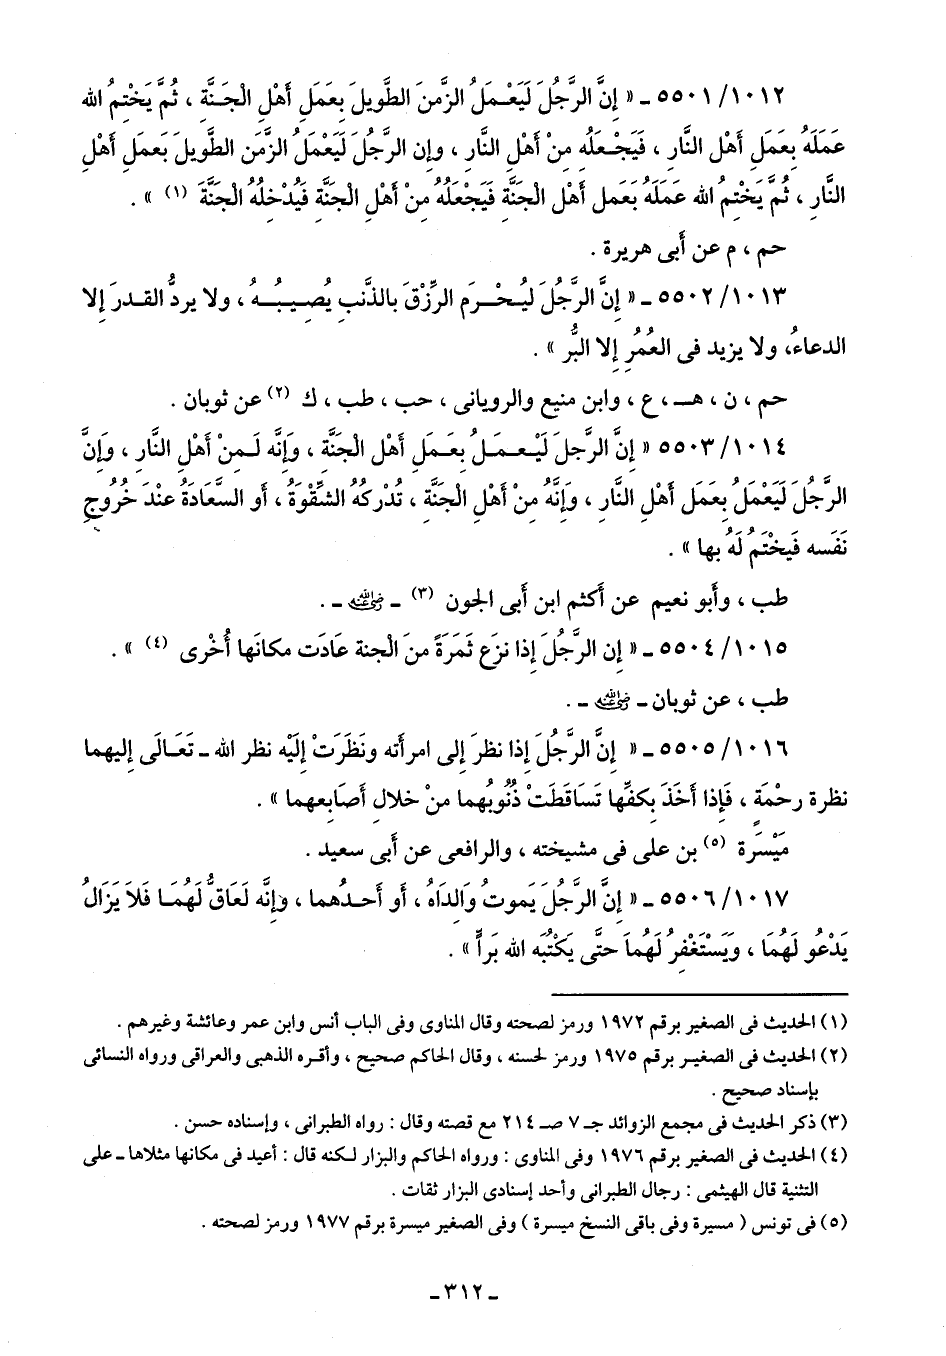 ٥٥٠١/١٠١٢ ـ « إِنَّ الرَّجُلَ لَيَعْمَلُ الزَّمنَ الطَّويلَ بِعَمَلِ أَهْلِ الْجَنَّةِ ، ثُمَّ يَخْتِمُ الله
عَمَلَهُ بِعَمَلِ أَهْلِ النَّارِ ، فَيَجْعَلُه مِنْ أَهْلِ النَّارِ ، وإن الرَّجُلَ لَيَعْمَلُ الزَّمَنِ الطَّويلَ بعَملِ أَهْلِ
النَّارِ ، ثُمَّ يَخْتِمُ الله عَمَلَهُ بعَمَلِ أَهْلِ الْجَنَّةِ فَيَجْعَلُهُ مِنْ أَهْلِ الْجَنَّةِ فَيُدْخِلُهُ الْجَنَّةَ (١) » .
حم ، م عن أَبى هريرة .
٥٥٠٢/١٠١٣ ـ « إِنَّ الرَّجُلَ ليُحْرَم الرِّزْقَ بالذَّنبِ يُصِيبُهُ ، ولا يردُّ القدرَ إِلا
الدعاءُ، ولا يزيد فى العُمُرِ إِلا البُّر » .
حم ، ن ، هـ ، ع ، وابن منيع والرويانى ، حب ، طب ، ك (٢) عن ثوبان .
٥٥٠٣/١٠١٤ « إِنَّ الرجلَ لَيْعملُ بِعَملِ أَهْلِ الْجَنَّةِ ، وَإِنَّه لَمنْ أَهْلِ النَّارِ ، وَإِنَّ
الرَّجُلَ لَيَعْمَلُ بِعَمَلِ أَهْلِ النَّارِ ، وَإِنَّهُ مِنْ أَهْلِ الْجَنَّةِ ، تُدْركُهُ الشِّقْوَةُ ، أَو السَّعَادَةُ عنْدَ خُرُوجِ
نَفَسه فَيخْتَمُ لَهُ بها » .
طب ، وأَبو نعيم عن أَكثم ابن أَبى الجون (٣) ـ رضي الله عنه ـ .
٥٥٠٤/١٠١٥ ـ « إِن الرَّجُلَ إِذا نزَع ثَمَرَةً منَ الْجنة عادَت مكانَها أُخْرى (٤) » .
طب ، عن ثوبان ـ رضي الله عنه ـ .
٥٥٠٥/١٠١٦ ـ « إِنَّ الرَّجُلَ إِذا نظرَ إِلى امرأَته ونَظَرَتْ إِلَيْه نظر الله ـ تَعَالَى إِليهما
نظرة رحْمَةٍ ، فَإِذا أَخَذَ بِكفِّها تَسَاقَطَتْ ذُنُوبُهما منْ خلالِ أَصَابِعهما » .
مَيْسَرة (٥) بن على فى مشيخته ، والرافعى عن أَبى سعيد .
٥٥٠٦/١٠١٧ ـ « إِنَّ الرَّجُلَ يَموتُ وَالِدَاهُ ، أَو أَحدُهما ، وَإِنَّه لَعَاقٌّ لَهُمَا فَلاَ يَزَالُ
يَدْعُو لَهُمَا ، وَيَسْتَغْفِرُ لَهُمَا حتَّى يَكْتُبَه الله بَراًّ » .
(١) الحديث فى الصغير برقم ١٩٧٢ ورمز لصحته وقال المناوى وفى الباب أنس وابن عمر وعائشة وغيرهم .
(٢) الحديث فى الصغير برقم ١٩٧٥ ورمز لحسنه ، وقال الحاكم صحيح ، وأقره الذهبى والعراقى ورواه النسائى
بإسناد صحيح .
(٣) ذكر الحديث فى مجمع الزوائد جـ ٧ صـ ٢١٤ مع قصته وقال : رواه الطبرانى ، وإسناده حسن .
(٤) الحديث فى الصغير برقم ١٩٧٦ وفى المناوى : ورواه الحاكم والبزار لكنه قال : أعيد فى مكانها مثلاها ـ على
التثنية قال الهيثمى : رجال الطبرانى وأحد إسنادى البزار ثقات .
(٥) فى تونس ( مسيرة وفى باقى النسخ ميسرة ) وفى الصغير ميسرة برقم ١٩٧٧ ورمز لصحته .
ـ ٣١٢ ـ